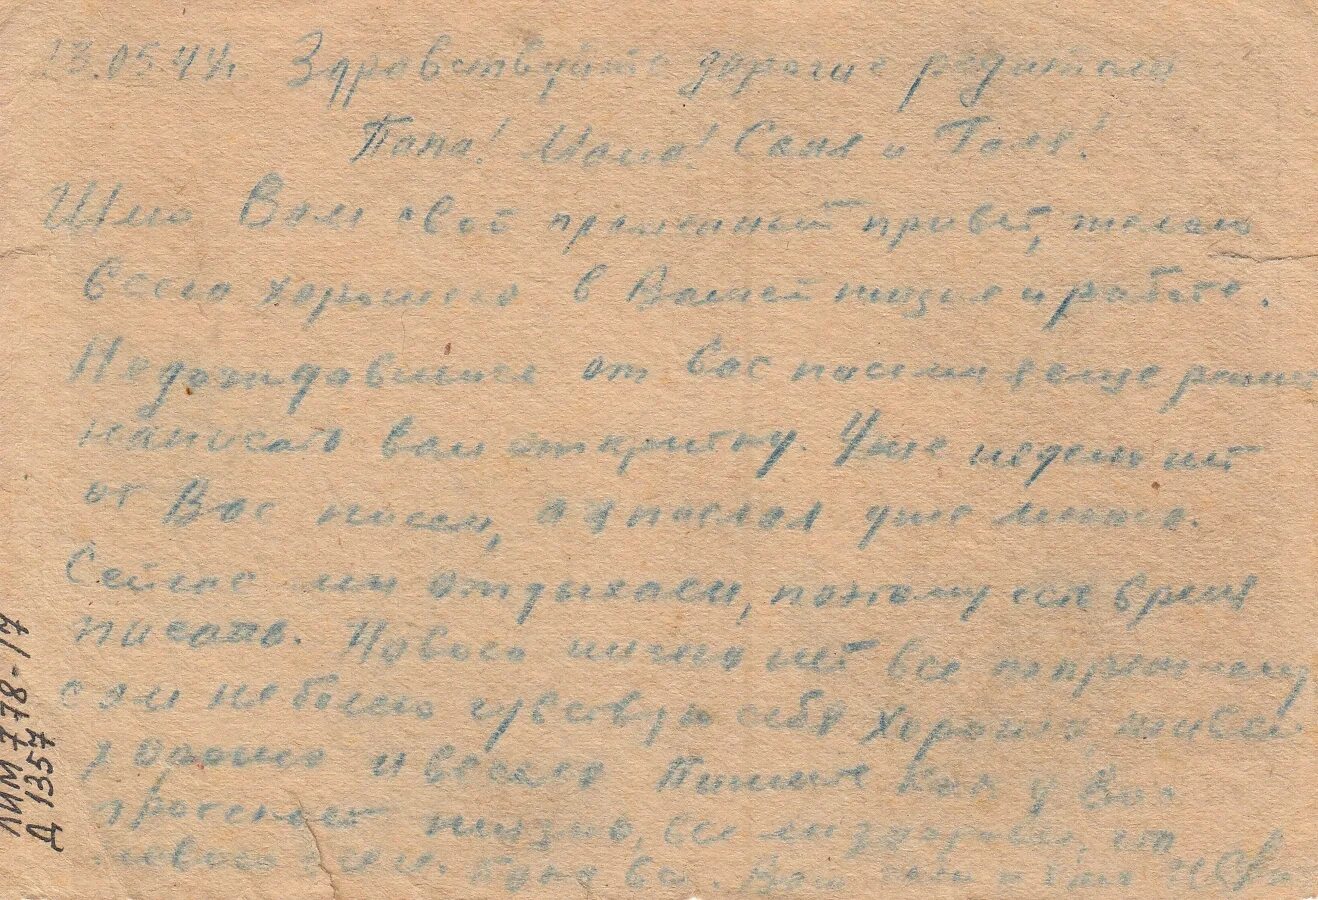 23.05.44г. Здравствуйте дорогие родители
Папа! Мама! Саня и Галя!
Шлю Вам свой пламенный привет, желаю
всего хорошего в Вашей жизни и работе.
Недождавшись от Вас писем я еще решил
написать вам открытку. Уже неделю нет
от Вас писем, а я послал уже много.
Сейчас мы отдыхаем, поэтому есть время
писать. Нового ничего нет все по прежнему
сам не болею чувствую себя хорошо, живем
хорошо и весело Пишите как у Вас
протекает жизнь, все ли здоровы, что
нового дома. Ваш сын и брат
ЛИМ 778-17
Д 1357